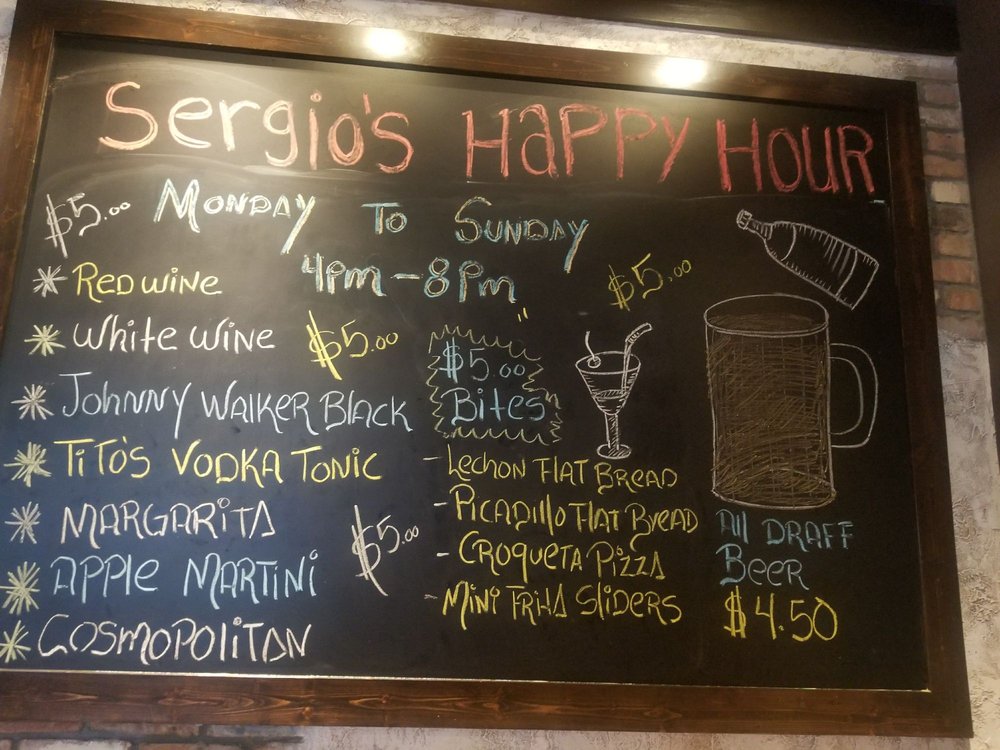 Sergio's Happy Hour
$5.00 Monday to Sunday
4pm - 8pm
* Red wine
$5.00
* White wine
$5.00
* Johnny Walker Black
* Tito's Vodka Tonic
* Margarita
$5.00
* Apple Martini
* Cosmopolitan
$5.00
Bites
- Lechon Flat Bread
- Picadillo Flat Bread
- Croqueta Pizza
- Mini Frita Sliders
All Draff
Beer
$4.50